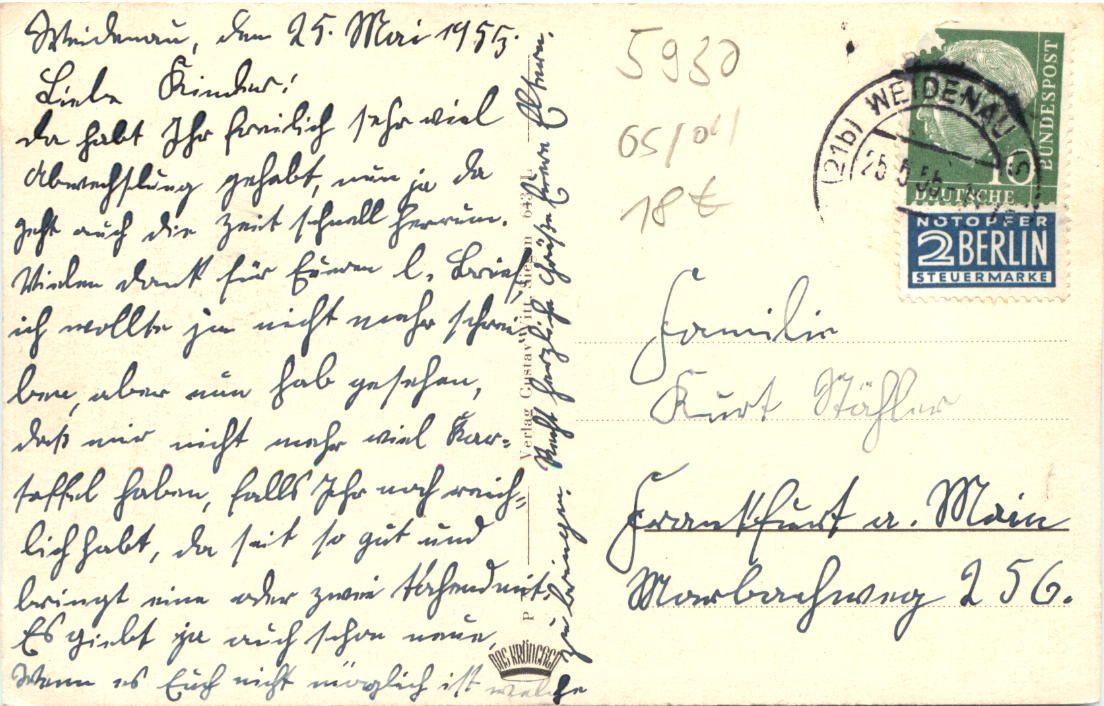 Weidenau, den 25. Mai 1955.
Liebe Kinder!
Da habt Ihr freilich sehr viel
Abwechslung gehabt, nun ja da
geht auch die Zeit schnell herrum.
Vielen Dank für Eueren l. Brief,
ich wollte ja nicht mehr schrei-
ben, aber nun hab gesehen,
daß wir nicht mehr viel Kar=
toffel haben, falls Ihr noch reich=
lich habt, da seit so gut und
bringt eine oder zwei mit.
Es giebt ja auch schon neue,
Wenn es Euch nicht möglich ist welche
zu bringen. Recht herzliche Grüße Euere Eltern.
Verlag Gustav Witt,
DAS KRÖNCHEN
5930
65/04
18 €
(21b) WEIDENAU
25.5.55
BUNDESPOST
10
DEUTSCHE
NOTOPFER
2 BERLIN
STEUERMARKE
Familie
Kurt Stähler
Frankfurt a. Main
Marbachweg 256.